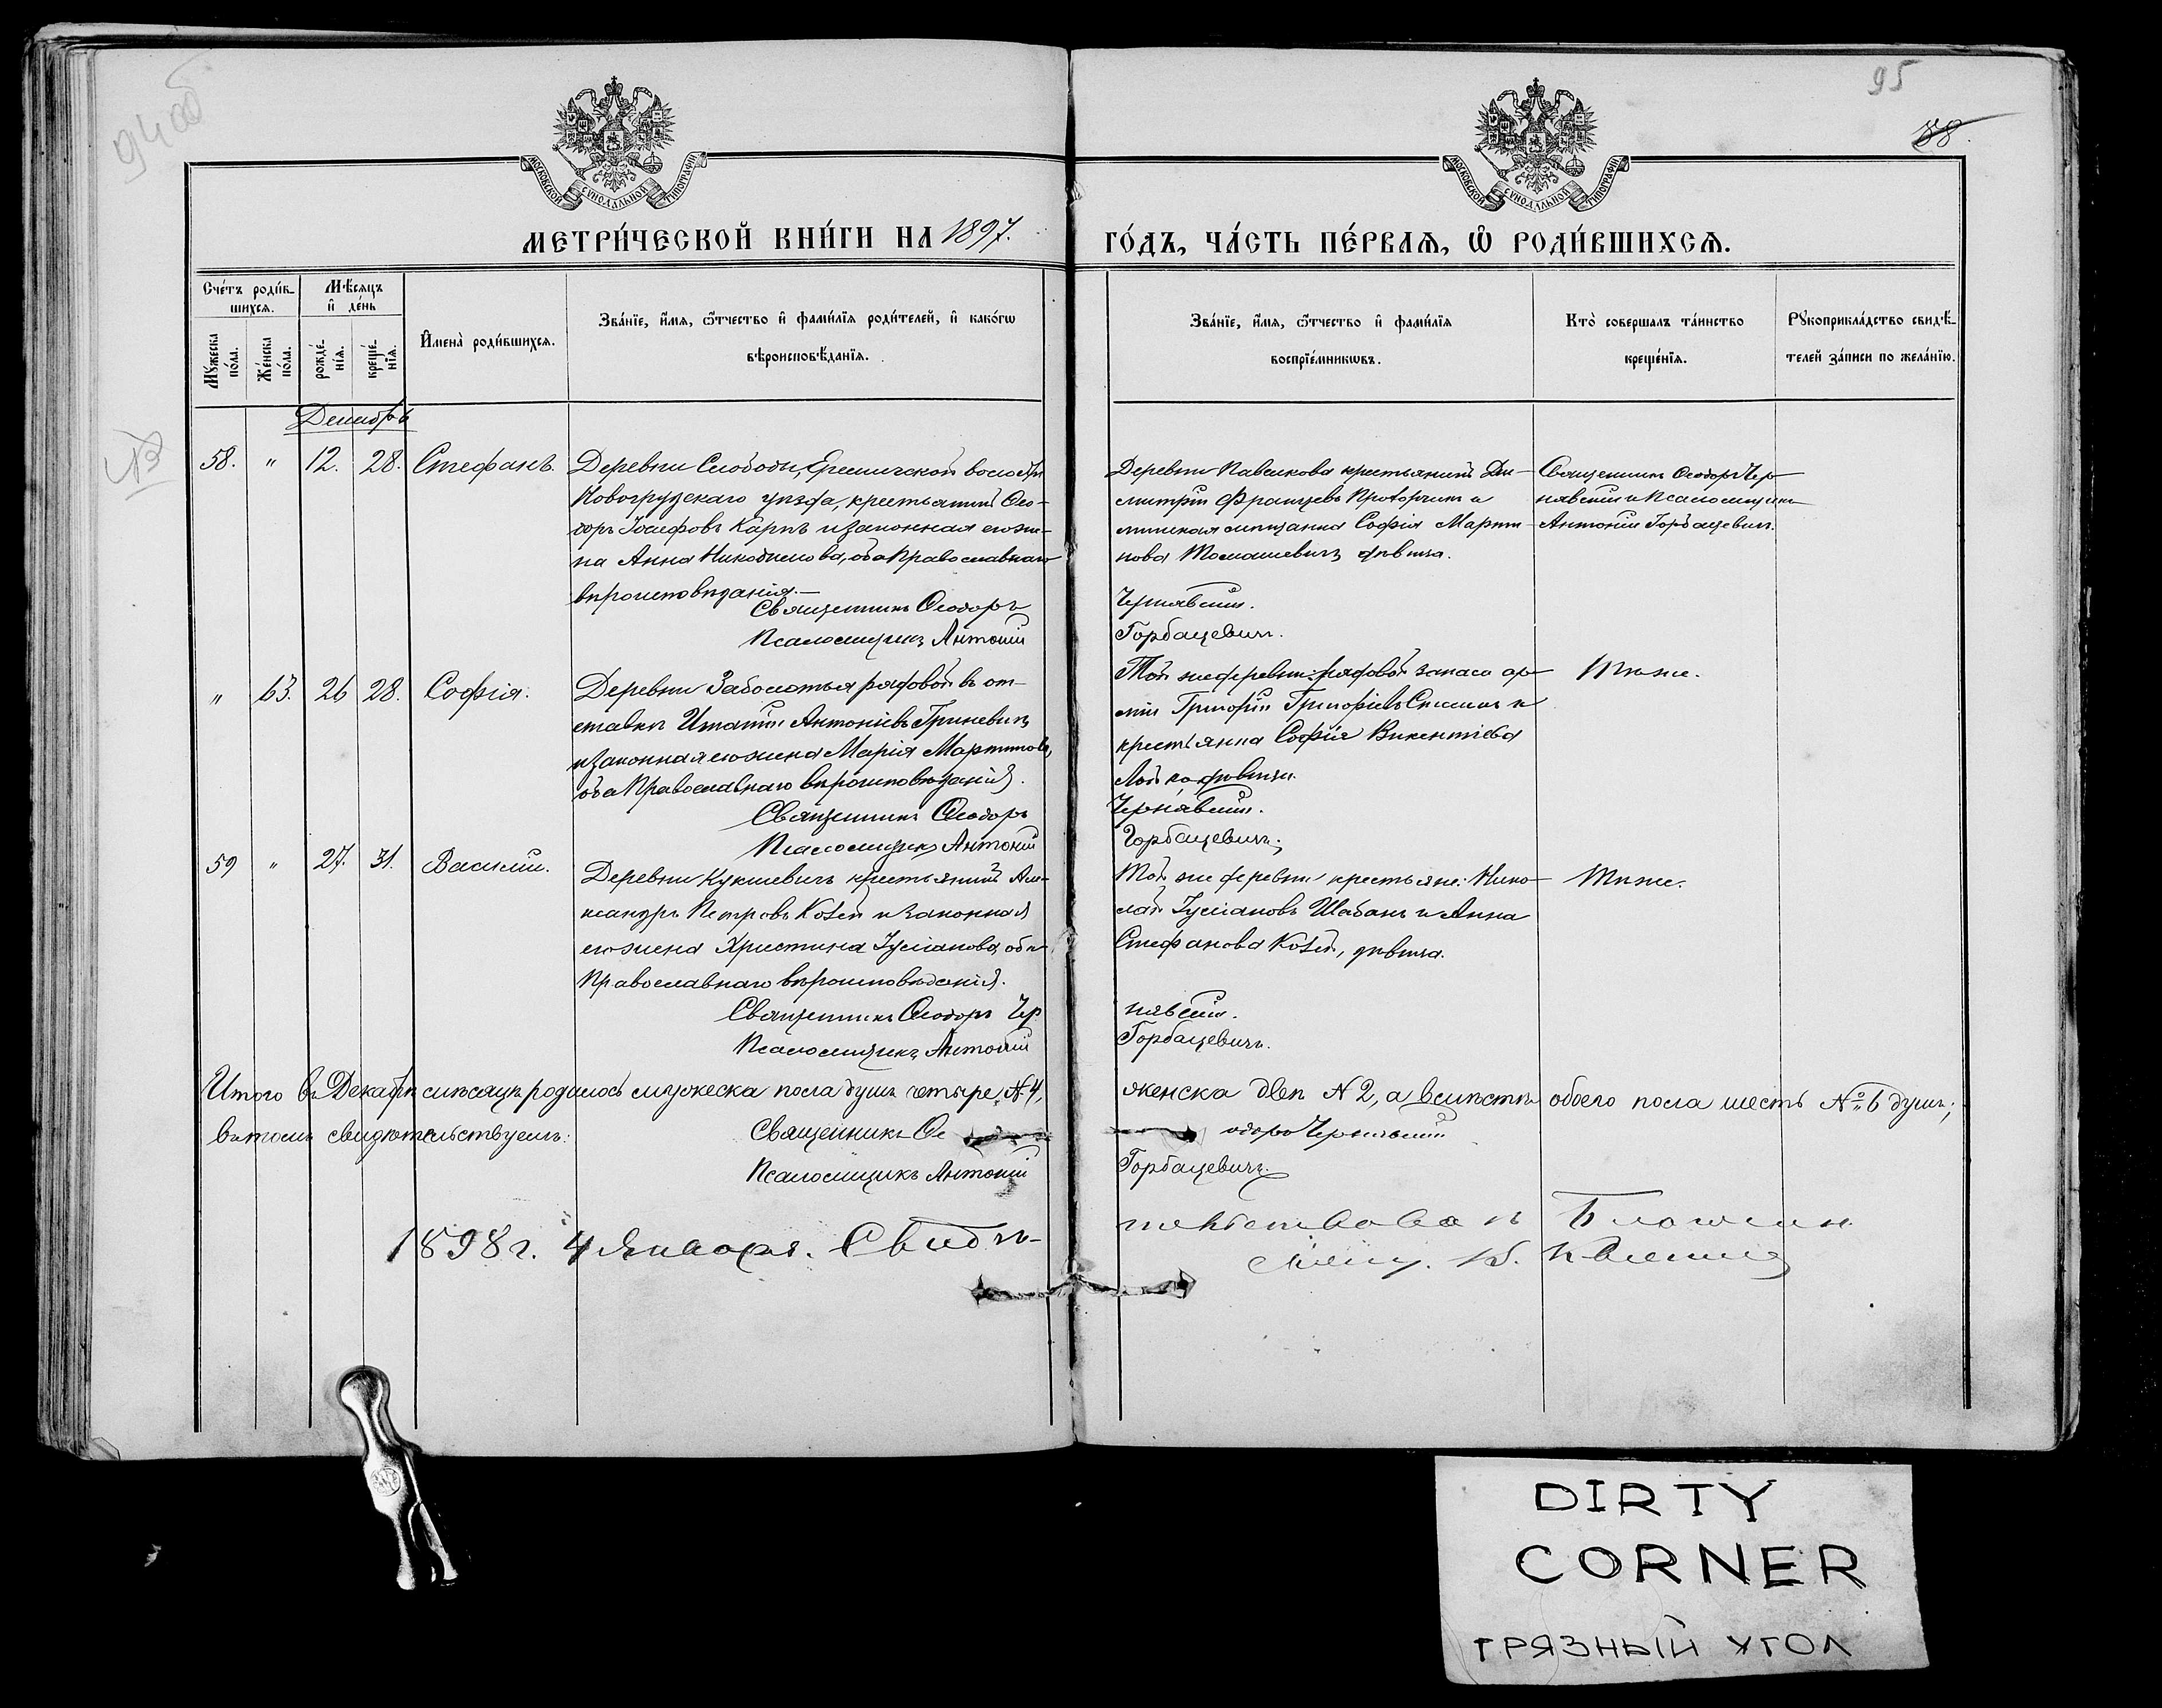 94 об
95
88.
МОСКОВСКОЙ СУНОДАЛЬНОЙ ТИПОГРАФІИ
МОСКОВСКОЙ СУНОДАЛЬНОЙ ТИПОГРАФІИ
МЕТРИ́ЧЕСКОЙ КНИ́ГИ НА 1897.
ГО́ДЪ, ЧА́СТЬ ПЕ́РВАѦ, Ѡ҆ РОДИ́ВШИХСѦ.
Сче́тъ роди́в-
шихсѧ.
Мѣ́сѧцъ
и҆ де́нь
Мꙋ́жеска по́ла.
Же́нска по́ла.
рожде́-нїѧ.
креще́-нїѧ.
И҆мена̀ роди́вшихсѧ.
Зва́нїе, и҆́мѧ, ѻ҆́тчество и҆ фами́лїѧ роди́телей, и҆ како́гѡ
вѣроисповѣ́данїѧ.
Зва́нїе, и҆́мѧ, ѻ҆́тчество и҆ фами́лїѧ
воспрїе́мникѡвъ.
Кто̀ совершалъ та́инство
креще́нїѧ.
Рꙋкоприкла́дство свидѣ́-
телей за́писи по жела́нїю.
Декабрь
58. " 12. 28. Стефанъ.
Деревни Слободы, Еремичской волости
Новогрудскаго уѣзда, крестьянинъ Ѳео-
доръ Іосифовъ Карпъ и законная его же-
на Анна Никодимова, оба Православнаго
вѣроисповѣданія.—
Священникъ Ѳеодоръ
Псаломщикъ Антоній
Деревни крестьянинъ Ди-
митрій Францевъ и
минская мѣщанка Софія Марти-
нова Томашевичъ дѣвица.
Чернявскій.
Горбацевичъ.
Священникъ Ѳеодоръ Чер-
нявскій и Псаломщикъ
Антоній Горбацевичъ.
" 63. 26 28. Софія.
Деревни Заболотья рядовой въ от-
ставкѣ Игнатій Антоніевъ Гриневичъ
и законная его жена Марія Мартинова,
оба Православнаго вѣроисповѣданія.
Священникъ Ѳеодоръ
Псаломщикъ Антоній
Той же деревни: рядовой запаса ар-
міи Григорій Григорьевъ и
крестьянка Софія Викентіева
дѣвица.
Чернявскій.
Горбацевичъ;
Тѣже.
59 " 27. 31. Василій.
Деревни Кукшевичъ крестьянинъ Але-
ксандръ Петровъ и законная
его жена Христина Іуліанова, оба
Православнаго вѣроисповѣданія.
Священникъ Ѳеодоръ Чер
Псаломщикъ Антоній
Той же деревни крестьяне: Нико-
лай Іуліановъ Шабанъ и Анна
Стефанова дѣвица.
нявскій.
Горбацевичъ.
Тѣже.
Итого въ Декабрѣ мѣсяцѣ родилось мужеска пола душъ четыре, №4,
женска двѣ №2, а всѣхъ обоего пола шесть №6 душъ;
въ томъ свидѣтельствуемъ:
Священникъ Ѳе
одоръ Чернявскій
Псаломщикъ Антоній
Горбацевичъ.
1898 г. 4 Января. Свидѣ-
тельствовалъ
DIRTY
CORNER
ГРЯЗНЫЙ УГОЛ